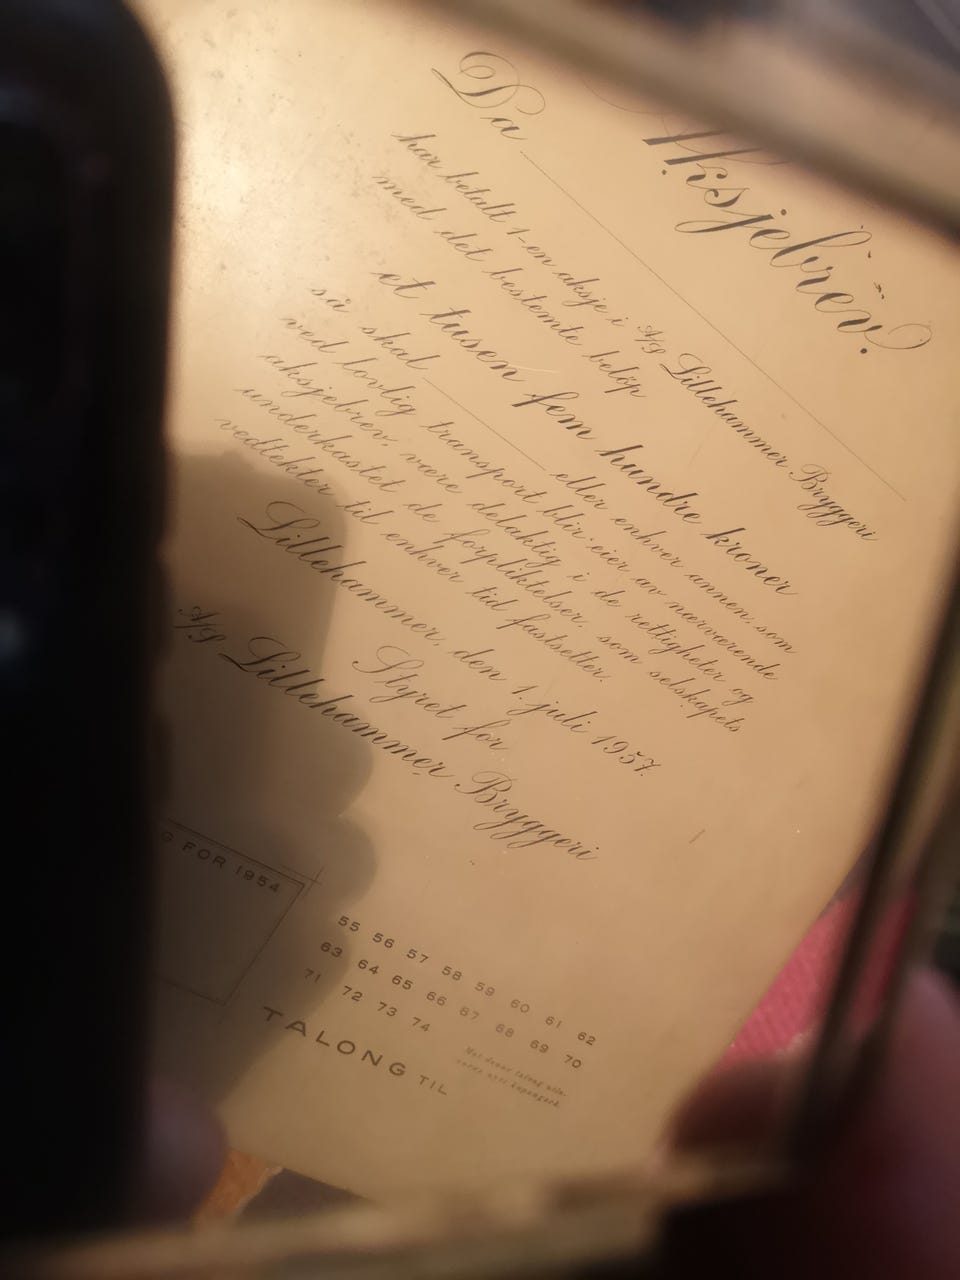 Aksjebrev.
Da
har betalt 1-en aksje i A/S Lillehammer Bryggeri
med det bestemte beløp
et tusen fem hundre kroner
så skal eller enhver annen, som
ved lovlig transport blir eier av nærværende
aksjebrev, være delaktig i de rettigheter og
underkastet de forpliktelser, som selskapets
vedtekter til enhver tid fastsetter.
Lillehammer, den 1. juli 1957.
Styret for
A/S Lillehammer Bryggeri
G FOR 1954
55 56 57 58 59 60 61 62
63 64 65 66 67 68 69 70
71 72 73 74
TALONG TIL
Mot denne talong utle-
veres nytt kupongark.